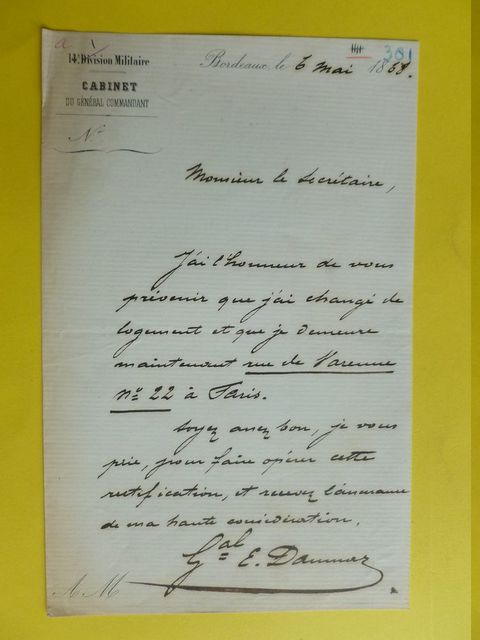 14e Division Militaire
CABINET
DU GÉNÉRAL COMMANDANT
No
381
Bordeaux, le 6 mai 1868.
Monsieur le Secrétaire,
J'ai l'honneur de vous
prévenir que j'ai changé de
logement et que je demeure
maintenant rue de Varenne
no 22 à Paris.
Soyez assez bon, je vous
prie, pour faire opérer cette
rectification, et recevez l'assurance
de ma haute considération.
Gal E. Daumas
A M